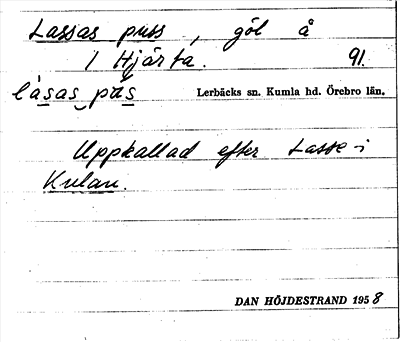 Lassas puss, göl å
1 Hjärta. 91.
låsas pus Lerbäcks sn. Kumla hd. Örebro län.
Uppkallad efter Lasse i
Kulan.
DAN HÖJDESTRAND 1958